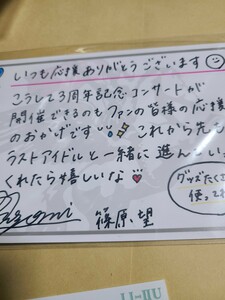 いつも応援ありがとうございます
こうして3周年記念コンサートが
開催できるのもファンの皆様の応援
のおかげです これから先も
ラストアイドルと一緒に進んで
くれたら嬉しいな
グッズたくさん
使ってね
篠原望